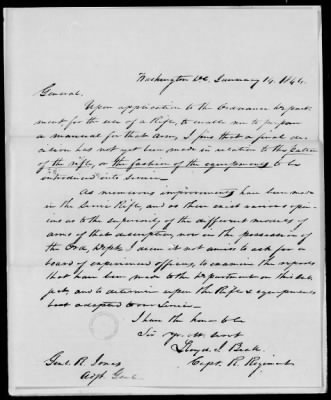 Washington DC January 14. 1846.
General,
Upon application to the Ordnance Depart-
ment for the use of a Rifle, to enable me to prepare
a manual for that Arm, I find that a final de-
cision has not yet been made in relation to the
of the rifle, or the fashion of the equipments to be
introduced into Service.
As numerous improvements have been made
in the Rifle, and as there exist various opin-
ions as to the superiority of the different models of
arms of that description, now in the possession of
the Ord. Dept., I deem it not amiss to ask for a
board of experienced officers, to examine the reports
that have been made to the Department on this sub-
ject, and to determine upon the Rifle & equipments
best adapted to our Service.
I have the honor to be
Sir yr. obt. servt
Lloyd J. Beall
Capt. R. Regiment
Genl. R. Jones
Adjt. Genl.